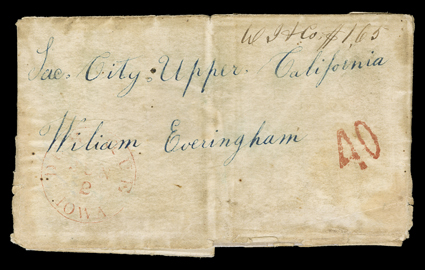 Sac. City. Upper. California
Wiliam Everingham
40
IOWA